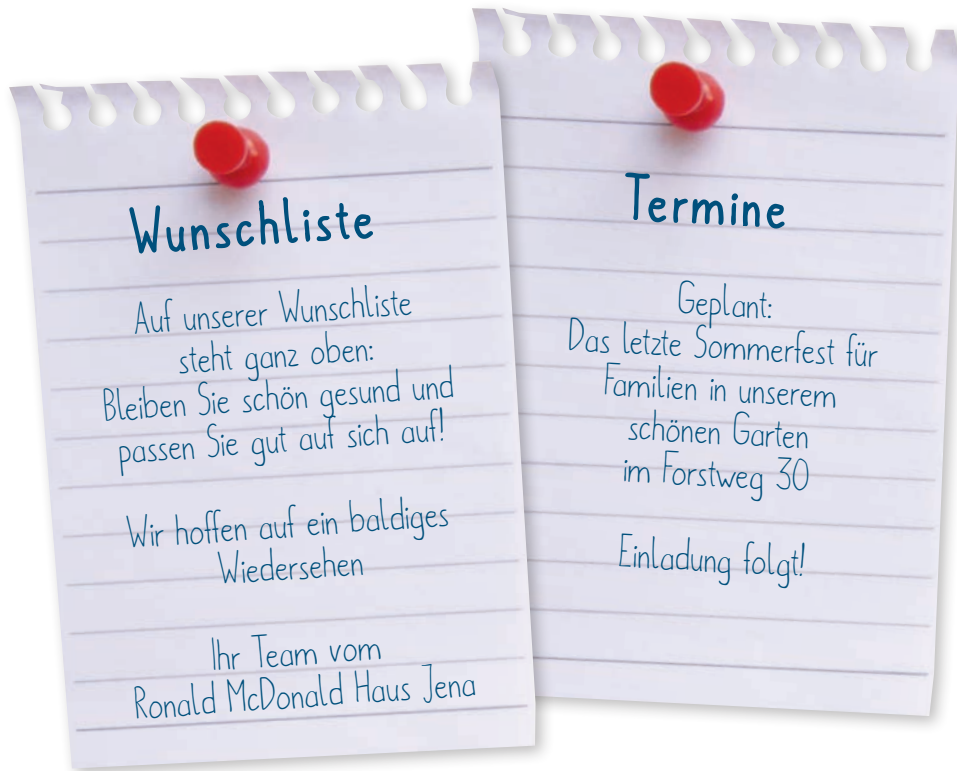 Wunschliste
Auf unserer Wunschliste
steht ganz oben:
Bleiben Sie schön gesund und
passen Sie gut auf sich auf!
Wir hoffen auf ein baldiges
Wiedersehen
Ihr Team vom
Ronald McDonald Haus Jena
Termine
Geplant:
Das letzte Sommerfest für
Familien in unserem
schönen Garten
im Forstweg 30
Einladung folgt!